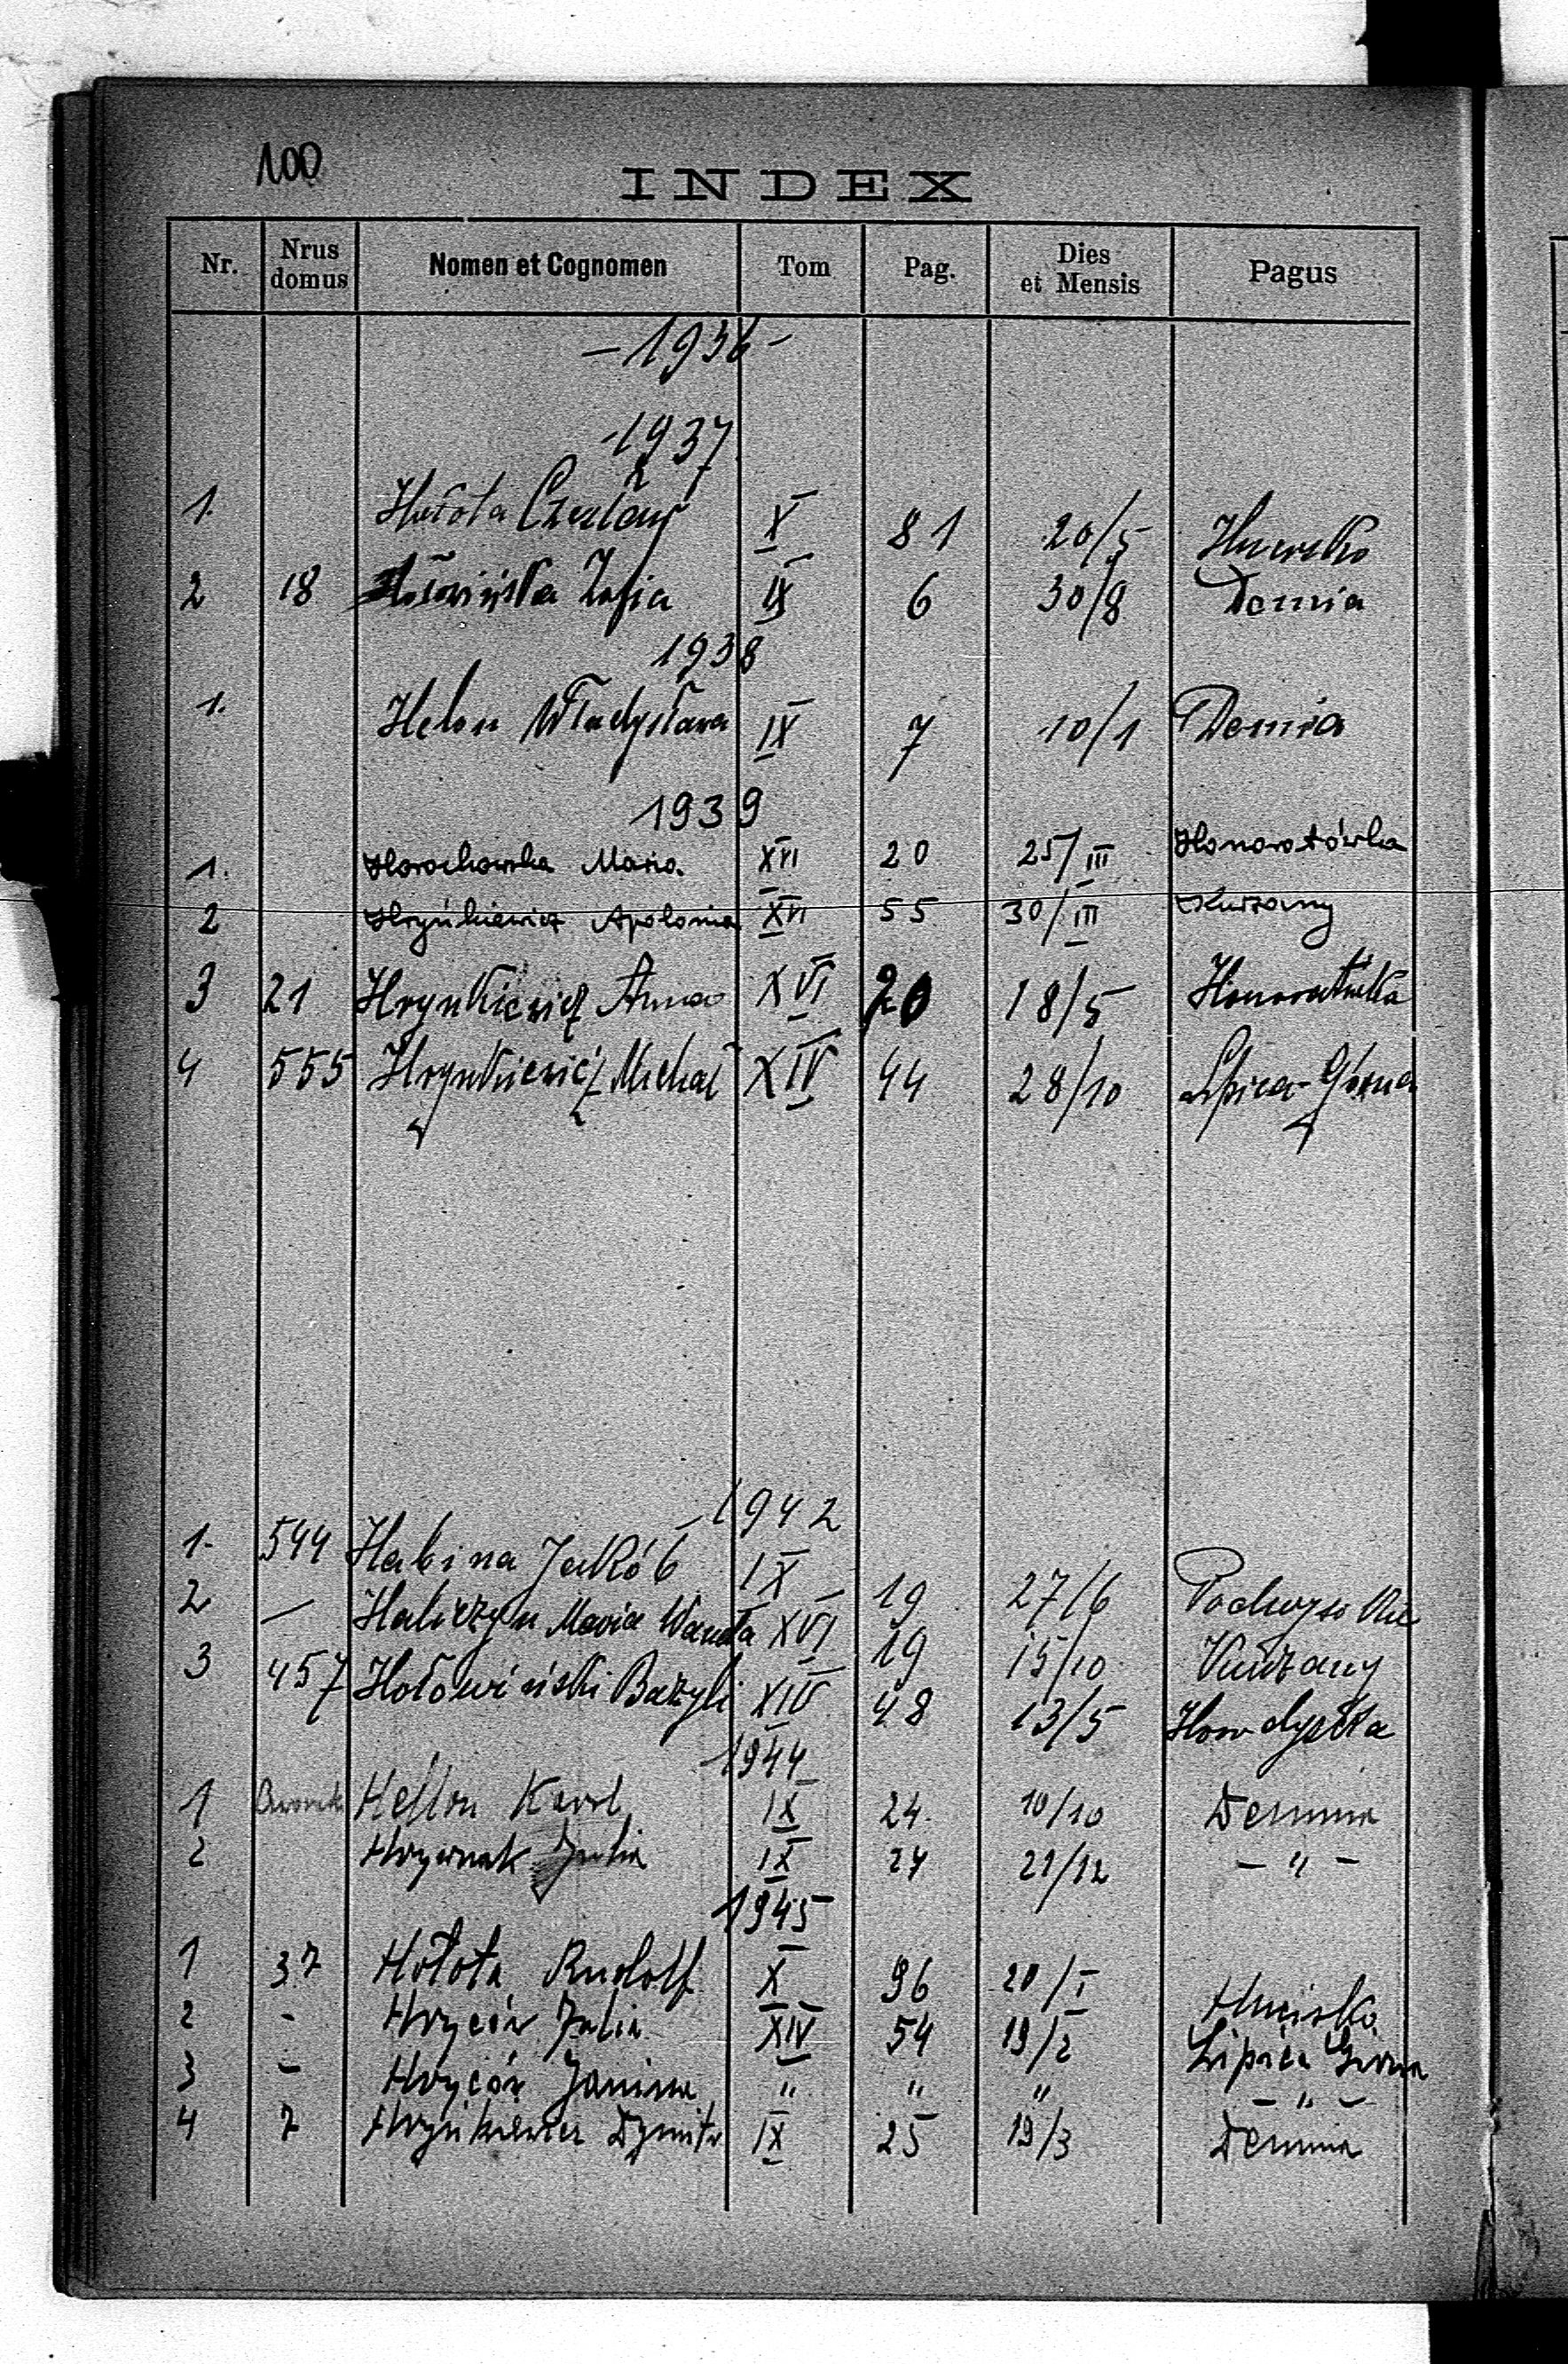 100
INDEX
Nr. Nrus domus Nomen et Cognomen Tom Pag. Dies et Mensis Pagus
-1936-
-1937
1. Hołota Czesław X 81 20/5 Hucisko
2 18 Zofia IX 6 30/8 Demia
1938
1. Helon Władysława IX 7 10/1 Demia
1939
1. Horochowska Maria XVI 20 25/III Honoratówka
2 Hryńkiewicz Apolonia XVI 55 30/III Kurzany
3 21 Hrynkiewicz Anna XVI 20 18/5
4 555 Hrynkiewicz Michał XIV 44 28/10 Lipica-Górna
1942
1. 544 Habina Jakób IX 19 27/6
2 — Haliczyn Maria Wanda XVI 19 15/10 Kurzany
3 457 Hołowiński Bazyli XIV 48 13/5
1944
1 Hellon Karol IX 24 10/10 Demnia
2 Julia IX 24 21/12 - " -
1945
1 37 Hołota Rudolf X 96 20/I Hucisko
2 - Hryców Julia XIV 54 19/2 Lipica Górna
3 - Hryców Janina " " " - " -
4 7 Hryńkiewicz Dymitr IX 25 19/3 Demnia